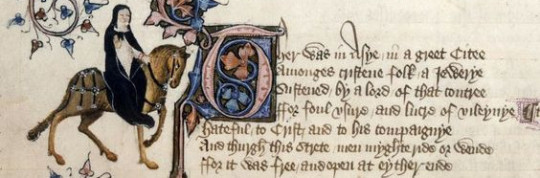 Ther was in Asye in a greet Citee
Amonges cristene folk a Jewerye
Sustened by a lord of that contree
ffor foul vsure and lucre of vileynye
hateful to Crist and to his compaignye
And thurgh this strete men myghte ride or wende
ffor it was free and open at eyther ende